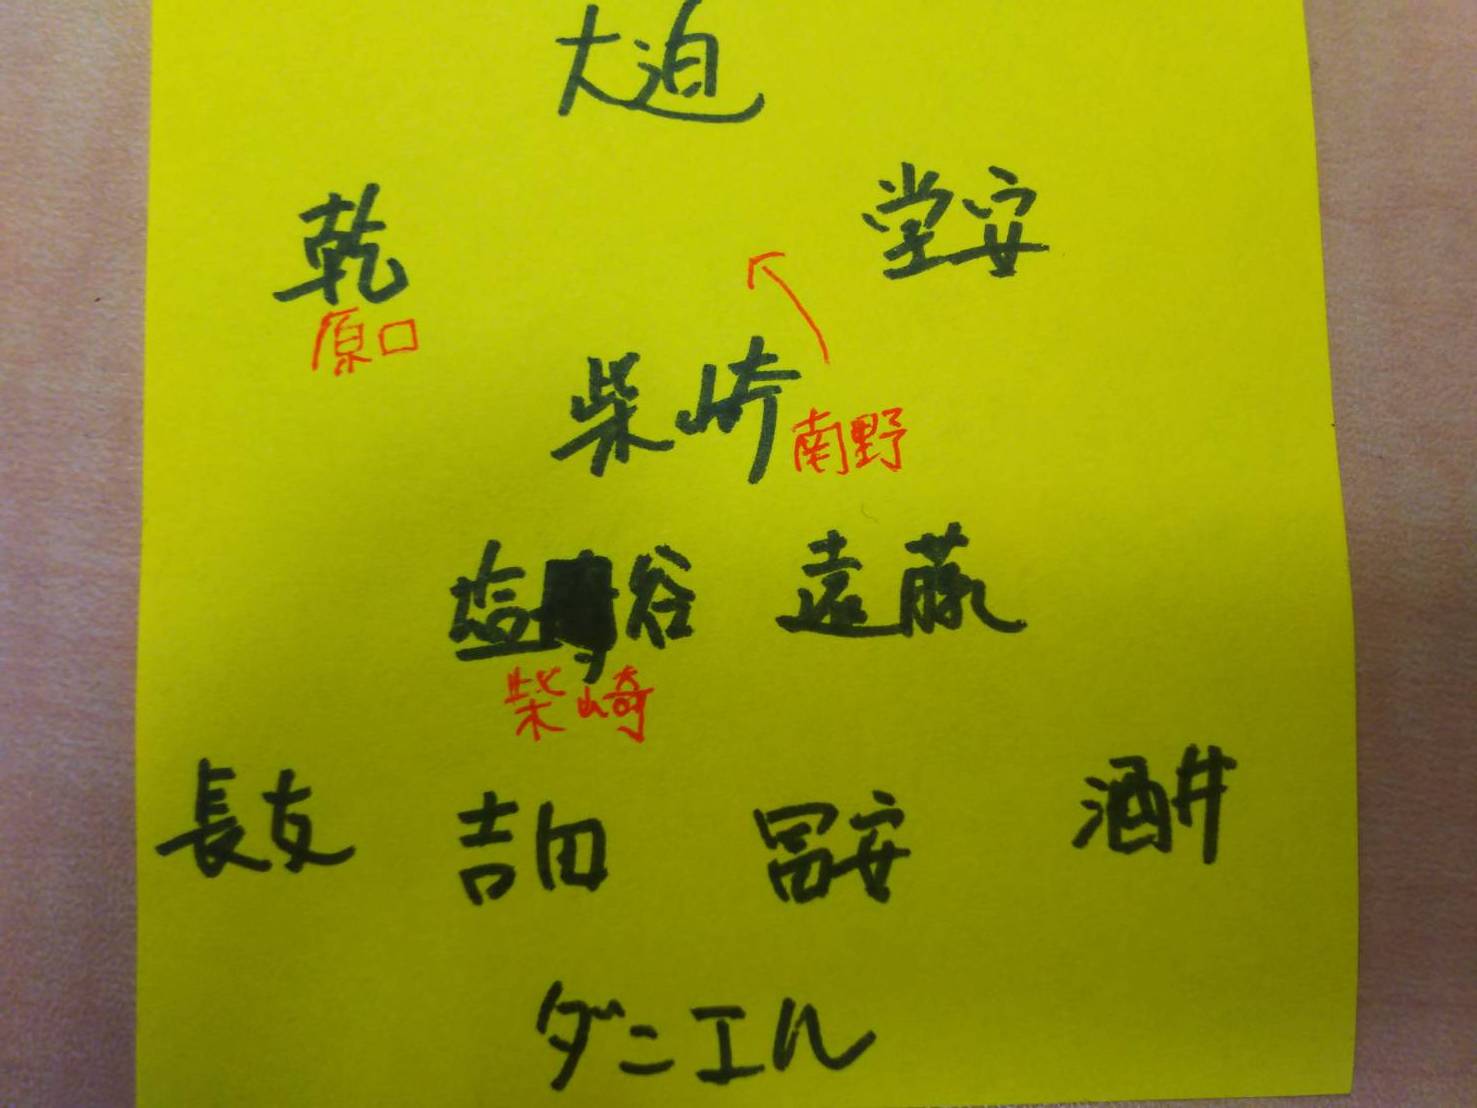 大迫
乾 堂安
原口
柴崎 南野
塩谷 遠藤
柴崎
長友 吉田 冨安 酒井
ダニエル